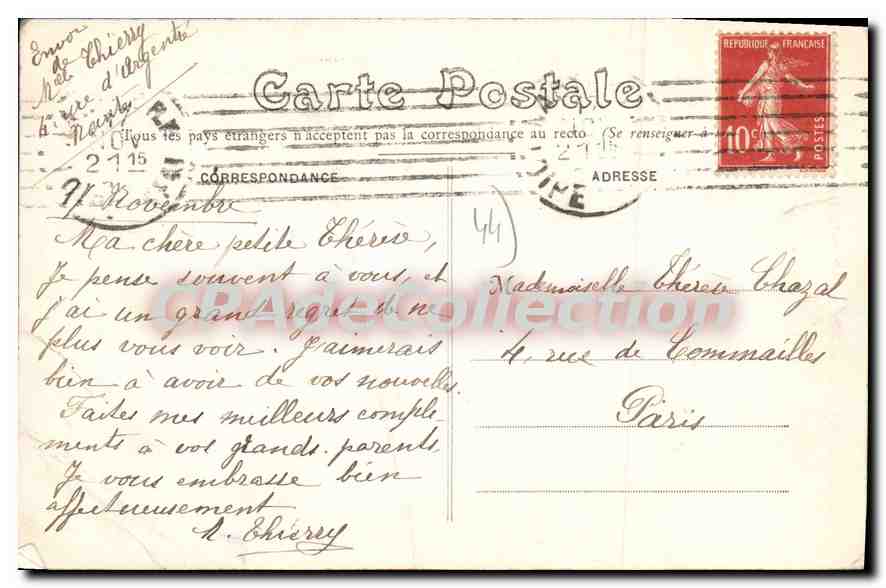 Envoi
de
Mlle Thierry
4 rue d'Argentré
Nantes
Carte Postale
Tous les pays étrangers n'acceptent pas la correspondance au recto (Se renseigner à
CORRESPONDANCE
ADRESSE
REPUBLIQUE FRANÇAISE
10c
POSTES
21 15
LOIRE
44
9 Novembre
Ma chère petite Thérèse,
Je pense souvent à vous, et
j'ai un grand regret de ne
plus vous voir. J'aimerais
bien à avoir de vos nouvelles.
Faites mes meilleurs compli-
ments à vos grands-parents
Je vous embrasse bien
affectueusement
Thierry
Mademoiselle Thérèse Chazal
4, rue de Commailles
Paris
CPAgeCollection